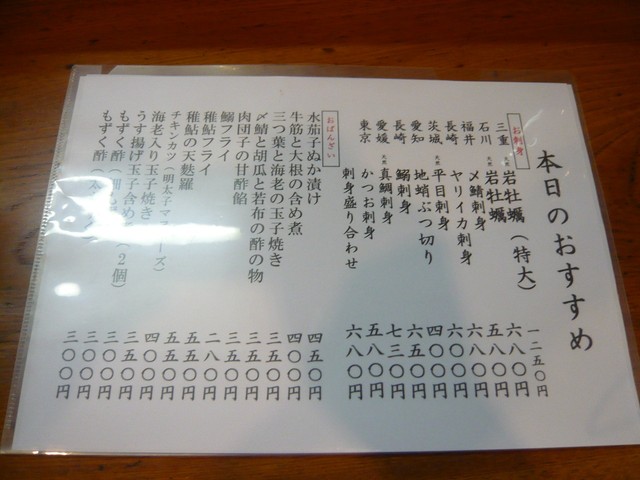 本日のおすすめ
お刺身
三重 天然 岩牡蠣(特大) 一二五〇円
石川 天然 岩牡蠣 六八〇円
福井 〆鯖刺身 五八〇円
長崎 ヤリイカ刺身 六八〇円
茨城 天然 平目刺身 六〇〇円
愛知 地蛸ぶつ切り 四〇〇円
長崎 鰯刺身 六五〇円
愛媛 天然 真鯛刺身 七三〇円
東京 かつお刺身 五八〇円
刺身盛り合わせ 六八〇円
おばんざい
水茄子ぬか漬け 四五〇円
牛筋と大根の含め煮 四〇〇円
三つ葉と海老の玉子焼き 三五〇円
〆鯖と胡瓜と若布の酢の物 三五〇円
肉団子の甘酢餡 三五〇円
鰯フライ 二八〇円
稚鮎フライ 五五〇円
稚鮎の天麩羅 五五〇円
チキンカツ(明太子マヨネーズ) 四〇〇円
海老入り玉子焼き 三五〇円
うす揚げ玉子含め(2個) 三〇〇円
もずく酢(細 三〇〇円
もずく酢(太 三〇〇円